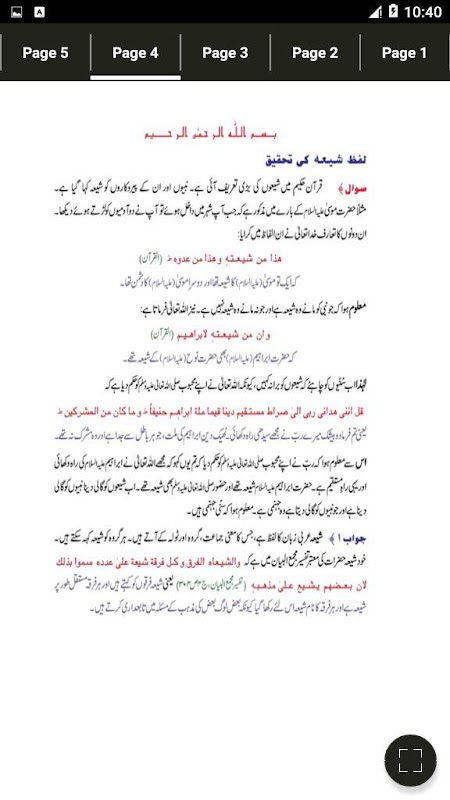 10:40
Page 5
Page 4
Page 3
Page 2
Page 1
بسم اللہ الرحمٰن الرحیم
لفظ شیعہ کی تحقیق
سوال﴾ قرآن حکیم میں شیعوں کی بڑی تعریف آئی ہے۔ نبیوں اور ان کے پیروکاروں کو شیعہ کہا گیا ہے۔
مثلاً حضرت موسیٰ علیہ السلام کے بارے میں مذکور ہے کہ جب آپ شہر میں داخل ہوئے تو آپ نے دو آدمیوں کو لڑتے ہوئے دیکھا۔
ان دونوں کا تعارف خدا تعالیٰ نے ان الفاظ میں کرایا:
ھذا من شیعتہٖ وھذا من عدوہ ط (القرآن)
کہ ایک تو موسیٰ (علیہ السلام) کا شیعہ تھا اور دوسرا موسیٰ (علیہ السلام) کا دشمن تھا۔
معلوم ہوا کہ جو نبی کو مانے وہ شیعہ ہے اور جو نہ مانے وہ شیعہ نہیں ہے۔ نیز اللہ تعالیٰ فرماتا ہے:
وان من شیعتہٖ لابراھیم (القرآن)
کہ حضرت ابراہیم (علیہ السلام) بھی حضرت نوح (علیہ السلام) کے شیعہ تھے۔
لہٰذا اب سُنّیوں کو چاہئے کہ شیعوں کو برا نہ کہیں، کیونکہ اللہ تعالیٰ نے اپنے محبوب صلی اللہ تعالیٰ علیہ وسلم کو حکم دیا ہے کہ
قل اننی ھدانی ربی الیٰ صراط مستقیم دینا قیما ملۃ ابراھم حنیفاً ط وما کان من المشرکین ط
یعنی تم فرما دو بیشک میرے ربّ نے مجھے سیدھی راہ دکھائی۔ ٹھیک دین ابراہیم کی ملت، جو ہر باطل سے جدا ہے اور وہ مشرک نہ تھے۔
اس سے معلوم ہوا کہ ربّ نے اپنے محبوب صلی اللہ تعالیٰ علیہ وسلم کو حکم دیا کہ تم یوں کہو کہ مجھے اللہ تعالیٰ نے ابراہیم علیہ السلام کی راہ دکھائی
اور یہی راہِ مستقیم ہے۔ حضرت ابراہیم علیہ السلام شیعہ تھے اور حضور صلی اللہ تعالیٰ علیہ وسلم بھی شیعہ تھے۔ اب شیعوں کو گالی دینا نبیوں کو گالی
دینا ہے اور جو نبیوں کو گالی دیتا ہے وہ جہنمی ہے۔ معلوم ہوا کہ سُنّی جہنمی ہیں۔
جواب ۱﴾ شیعہ عربی زبان کا لفظ ہے، جس کا معنی جماعت، گروہ اور ٹولہ کے آتے ہیں۔ ہر گروہ کو شیعہ کہہ سکتے ہیں۔
خود شیعہ حضرات کی معتبر تفسیر مجمع البیان میں ہے کہ والشیعاہ الفرق وکل فرقۃ شیعۃ علیٰ عددہ سموا بذلک
لان بعضھم یشیع علیٰ مذھبہٖ (تفسیر مجمع البیان، ج۳ ص۳۰۲) یعنی شیعہ فرقوں کو کہتے ہیں اور ہر فرقہ مستقل طور پر
شیعہ ہے اور ہر فرقہ کا نام شیعہ اس لئے رکھا گیا کیونکہ بعض لوگ بعض کی مذہب کے مسئلہ میں تابعداری کرتے ہیں۔